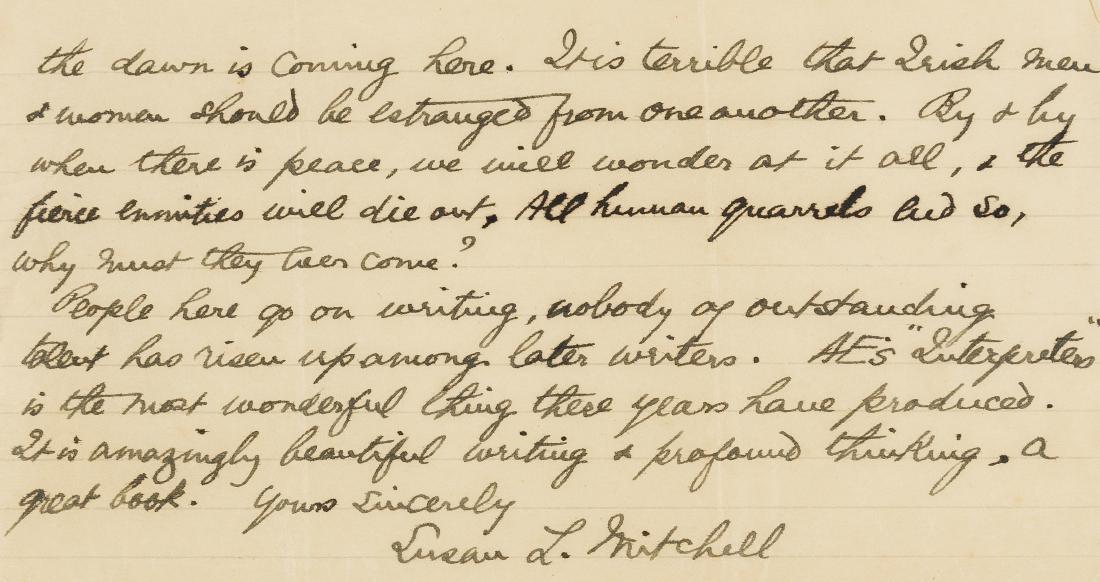 the dawn is coming here. It is terrible that Irish men
& women should be estranged from one another. By & by
when there is peace, we will wonder at it all, & the
fierce enmities will die out. All human quarrels end so,
why must they ever come?
People here go on writing, nobody of outstanding
talent has risen up among later writers. AE's "Interpreters"
is the most wonderful thing these years have produced.
It is amazingly beautiful writing & profound thinking. A
great book. Yours sincerely
Susan L. Mitchell